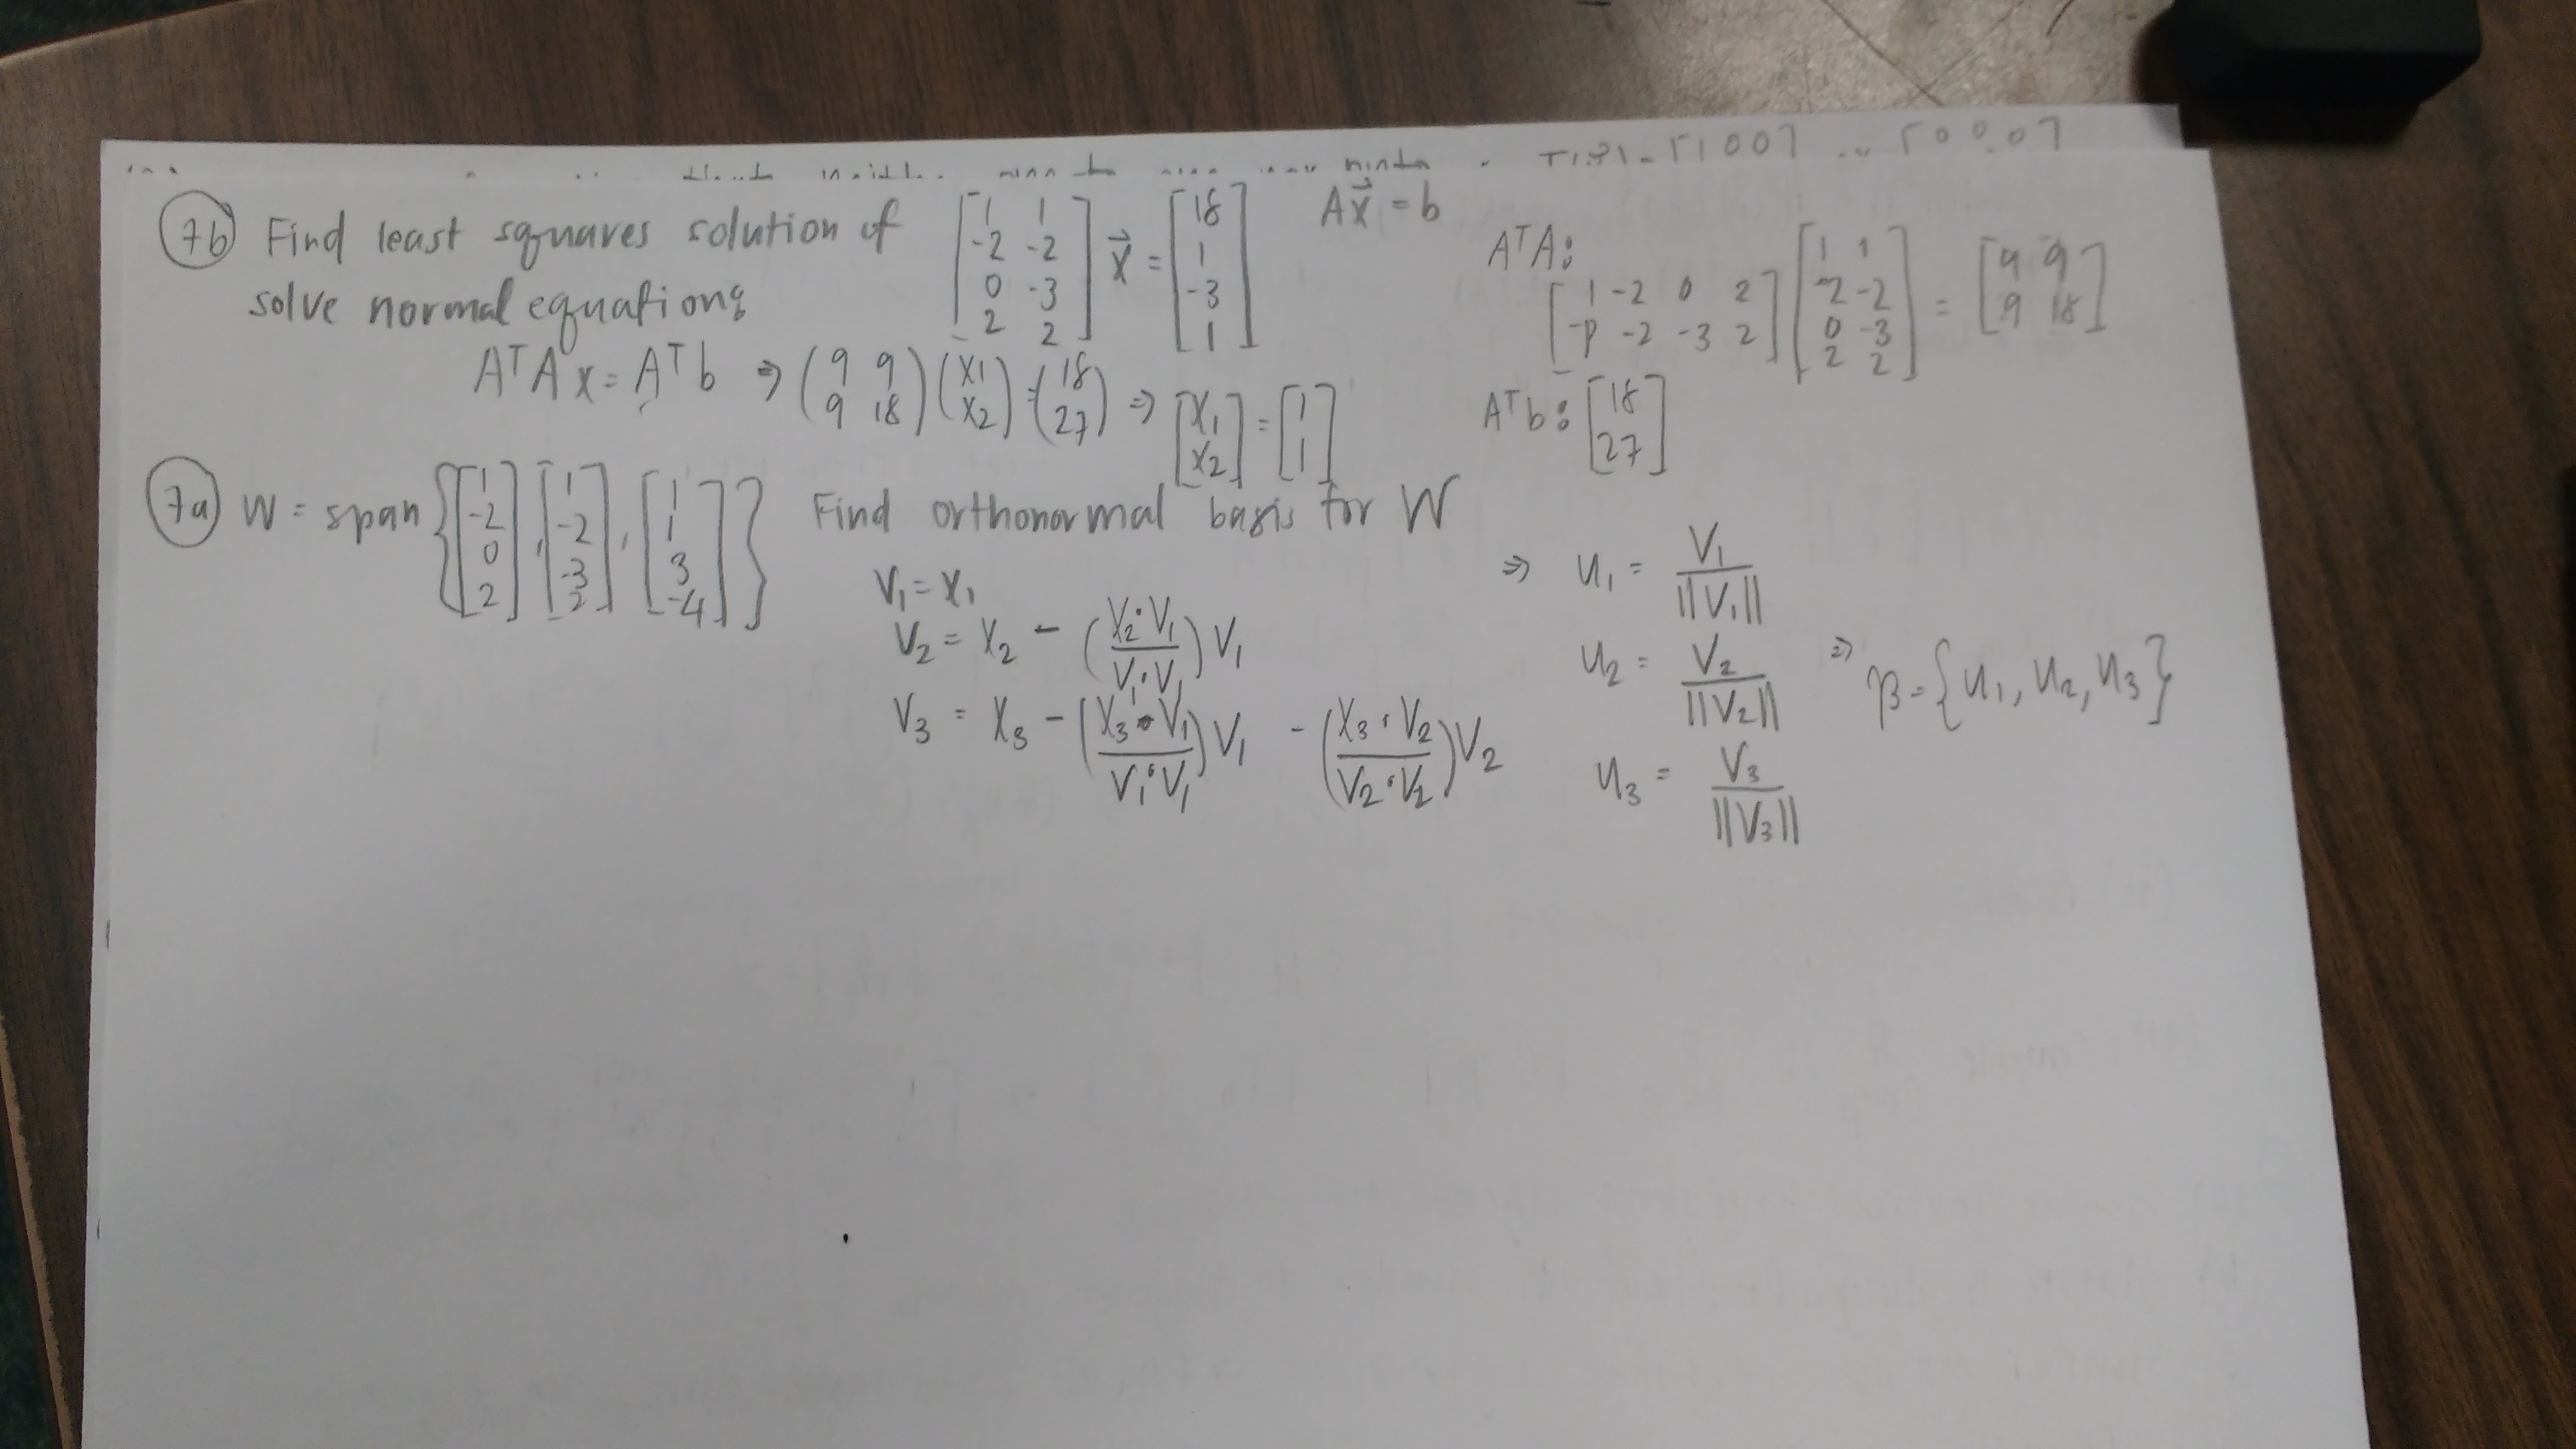 (7b) Find least squares solution of [1 1; -2 -2; 0 -3; 2 2] x⃗ = [18; 1; -3; 1] Ax⃗ = b
solve normal equations
AᵀA: [1 -2 0 2; -2 -3 2] [1 1; -2 -2; 0 -3; 2 2] = [9 9; 9 18]
AᵀAx = Aᵀb ⇒ (9 9; 9 18)(x1; x2) = (18; 27) ⇒ [x1; x2] = [1; 1]
Aᵀb: [18; 27]
(7a) W = span {[1; -2; 0; 2], [1; -2; -3; 2], [1; 1; 3; -4]} Find orthonormal basis for W
V₁ = X₁
V₂ = X₂ - (X₂·V₁ / V₁·V₁) V₁
V₃ = X₃ - (X₃·V₁ / V₁·V₁) V₁ - (X₃·V₂ / V₂·V₂) V₂
⇒ u₁ = V₁ / ||V₁||
u₂ = V₂ / ||V₂|| ⇒ β = {u₁, u₂, u₃}
u₃ = V₃ / ||V₃||